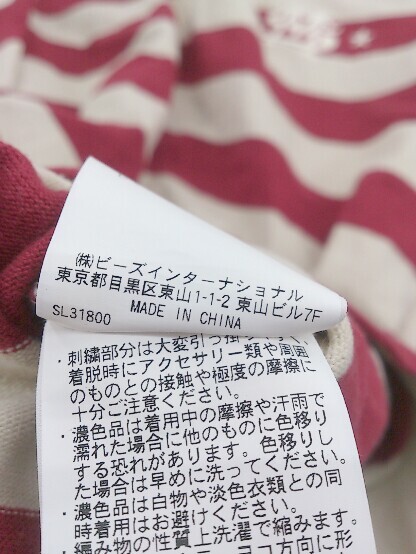 ㈱ビーズインターナショナル
東京都目黒区東山1-1-2 東山ビル7F
SL31800 MADE IN CHINA
・刺繍部分は大変引っ掛
着脱時にアクセサリー類や周囲
のものとの接触や極度の摩擦に
十分ご注意ください。
・濃色品は着用中の摩擦や汗雨で
濡れた場合に他のものに色移り
する恐れがあります。色移りし
た場合は早めに洗ってください。
・濃色品は白物や淡色衣類との同
時着用はお避けください。
・編み物の性質上洗濯で縮みます。
ヨコ方向に形